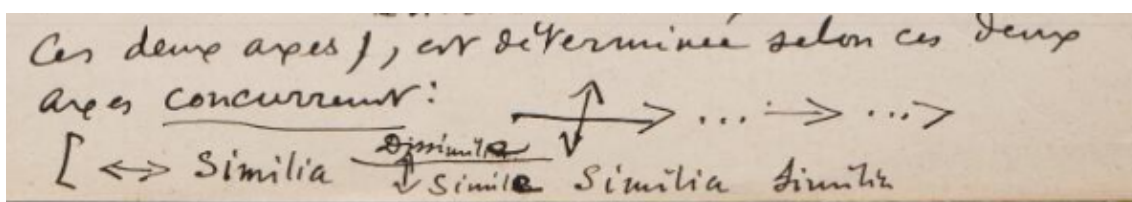 Ces deux axes), est déterminée selon ces deux
axes concurrent:
... → ... >
[ ↔ Similia Dissimilia ↕ Simile Similia Similia